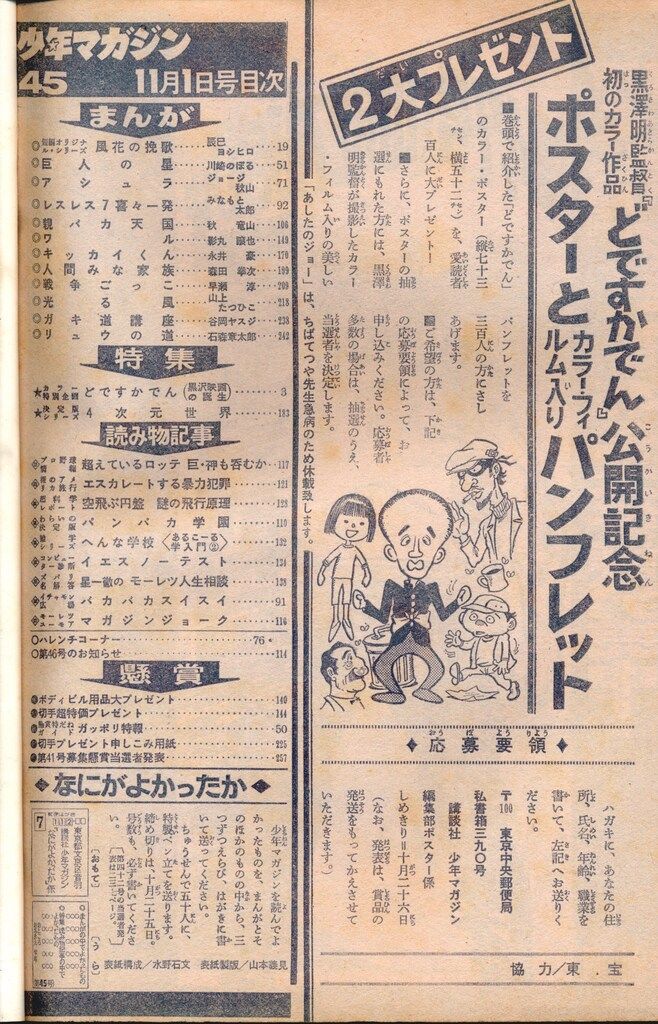 少年マガジン
45 11月1日号目次
まんが
◎短編オリジナル・シリーズ 風花の挽歌 辰巳ヨシヒロ 19
◎巨人の星 川崎のぼる 51
◎アシュラ ジョージ秋山 71
◎レスレス7喜々一発 みなもと太郎 92
◎親バカ天国 秋竜山 106
◎ワル 影丸譲也 149
◎キッカイくん 永井豪 170
◎人間みな家族 森田拳次 199
◎戦争ごっこ 早瀬淳 218
◎光る風 山上たつひこ 209
◎ガキ道講座 谷岡ヤスジ 238
◎リュウの道 石森章太郎 242
特集
★カラー特別企画 どですかでん(黒沢映画の誕生) 3
★決定版シリーズ 4次元世界 183
読み物記事
超えているロッテ 巨・神も呑むか 117
エスカレートする暴力犯罪 121
空飛ぶ円盤 謎の飛行原理 128
バンバカ学園 110
へんな学校〈あるこーる学入門②〉 122
イエスノーテスト 134
星一徹の モーレツ人生相談 138
バカバカスイスイ 91
マガジンジョーク 116
○ハレンチコーナー 76
○第46号のお知らせ 114
懸賞
●ボディビル用品大プレゼント 140
●切手超特価プレゼント 144
ガッポリ特報 50
●切手プレゼント申しこみ用紙 225
●第41号募集懸賞当選者発表 257
◆なにがよかったか◆
少年マガジンを読んでよ
かったものを、まんがとそ
のほかのものの中から、三
つずつえらび、はがきに書
いて送ってください。
ちゅうせんで五十人に、
特製ペン立てを送ります。
締め切りは、十月二十五日。
号数も、必ず書いてくださ
い。
〔おもて〕
〔うら〕
7
東京都文京区音羽
講談社 少年マガジン
「なにがよかったか」係
第45号
表紙構成／水野石文 表紙製版／山本義見
2大プレゼント
黒澤明監督
初のカラー作品
「どですかでん」公開記念
ポスターと
カラー・フィルム入り
パンフレット
■巻頭で紹介した「どですかでん」
のカラー・ポスター(縦七十三
センチ、横五十二センチ)を、愛読者
百人に大プレゼント！
■さらに、ポスターの抽
選にもれた方には、黒澤
明監督が撮影したカラー
・フィルム入りの美しい
パンフレットを
三百人の方にさし
あげます。
■ご希望の方は、下記
の応募要領によって、お
申し込みください。応募者
多数の場合は、抽選のうえ、
当選者を決定します。
「あしたのジョー」は、ちばてつや先生急病のため休載致します。
◆応募要領◆
ハガキに、あなたの住
所、氏名、年齢、職業を
書いて、左記へお送りく
ださい。
〒100 東京中央郵便局
私書箱三九〇号
講談社 少年マガジン
編集部ポスター係
しめきり＝十月二十六日
(なお、発表は、賞品の
発送をもってかえさせて
いただきます。)
協力／東宝